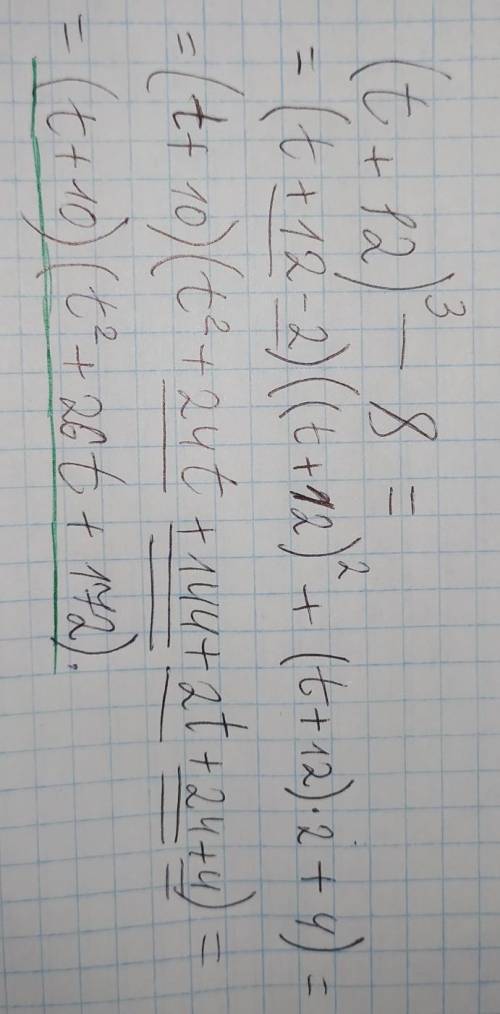 (t + 12)³ - 8 =
= (t + 12 - 2)((t + 12)² + (t + 12)·2 + 4) =
= (t + 10)(t² + 24t + 144 + 2t + 24 + 4) =
= (t + 10)(t² + 26t + 172).